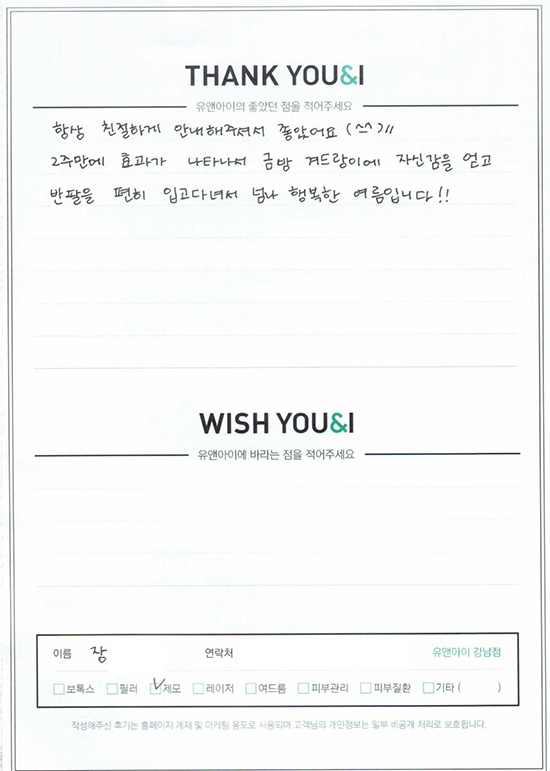 THANK YOU&I
유앤아이의 좋았던 점을 적어주세요
항상 친절하게 안내해주셔서 좋았어요 (^^)//
2주만에 효과가 나타나서 금방 겨드랑이에 자신감을 얻고
반팔을 편히 입고다녀서 넘나 행복한 여름입니다!!
WISH YOU&I
유앤아이에 바라는 점을 적어주세요
이름 장 연락처 유앤아이 강남점
보톡스 필러 V 제모 레이저 여드름 피부관리 피부질환 기타 ( )
작성해주신 후기는 홈페이지 게재 및 마케팅 용도로 사용되며 고객님의 개인정보는 일부 비공개 처리로 보호됩니다.